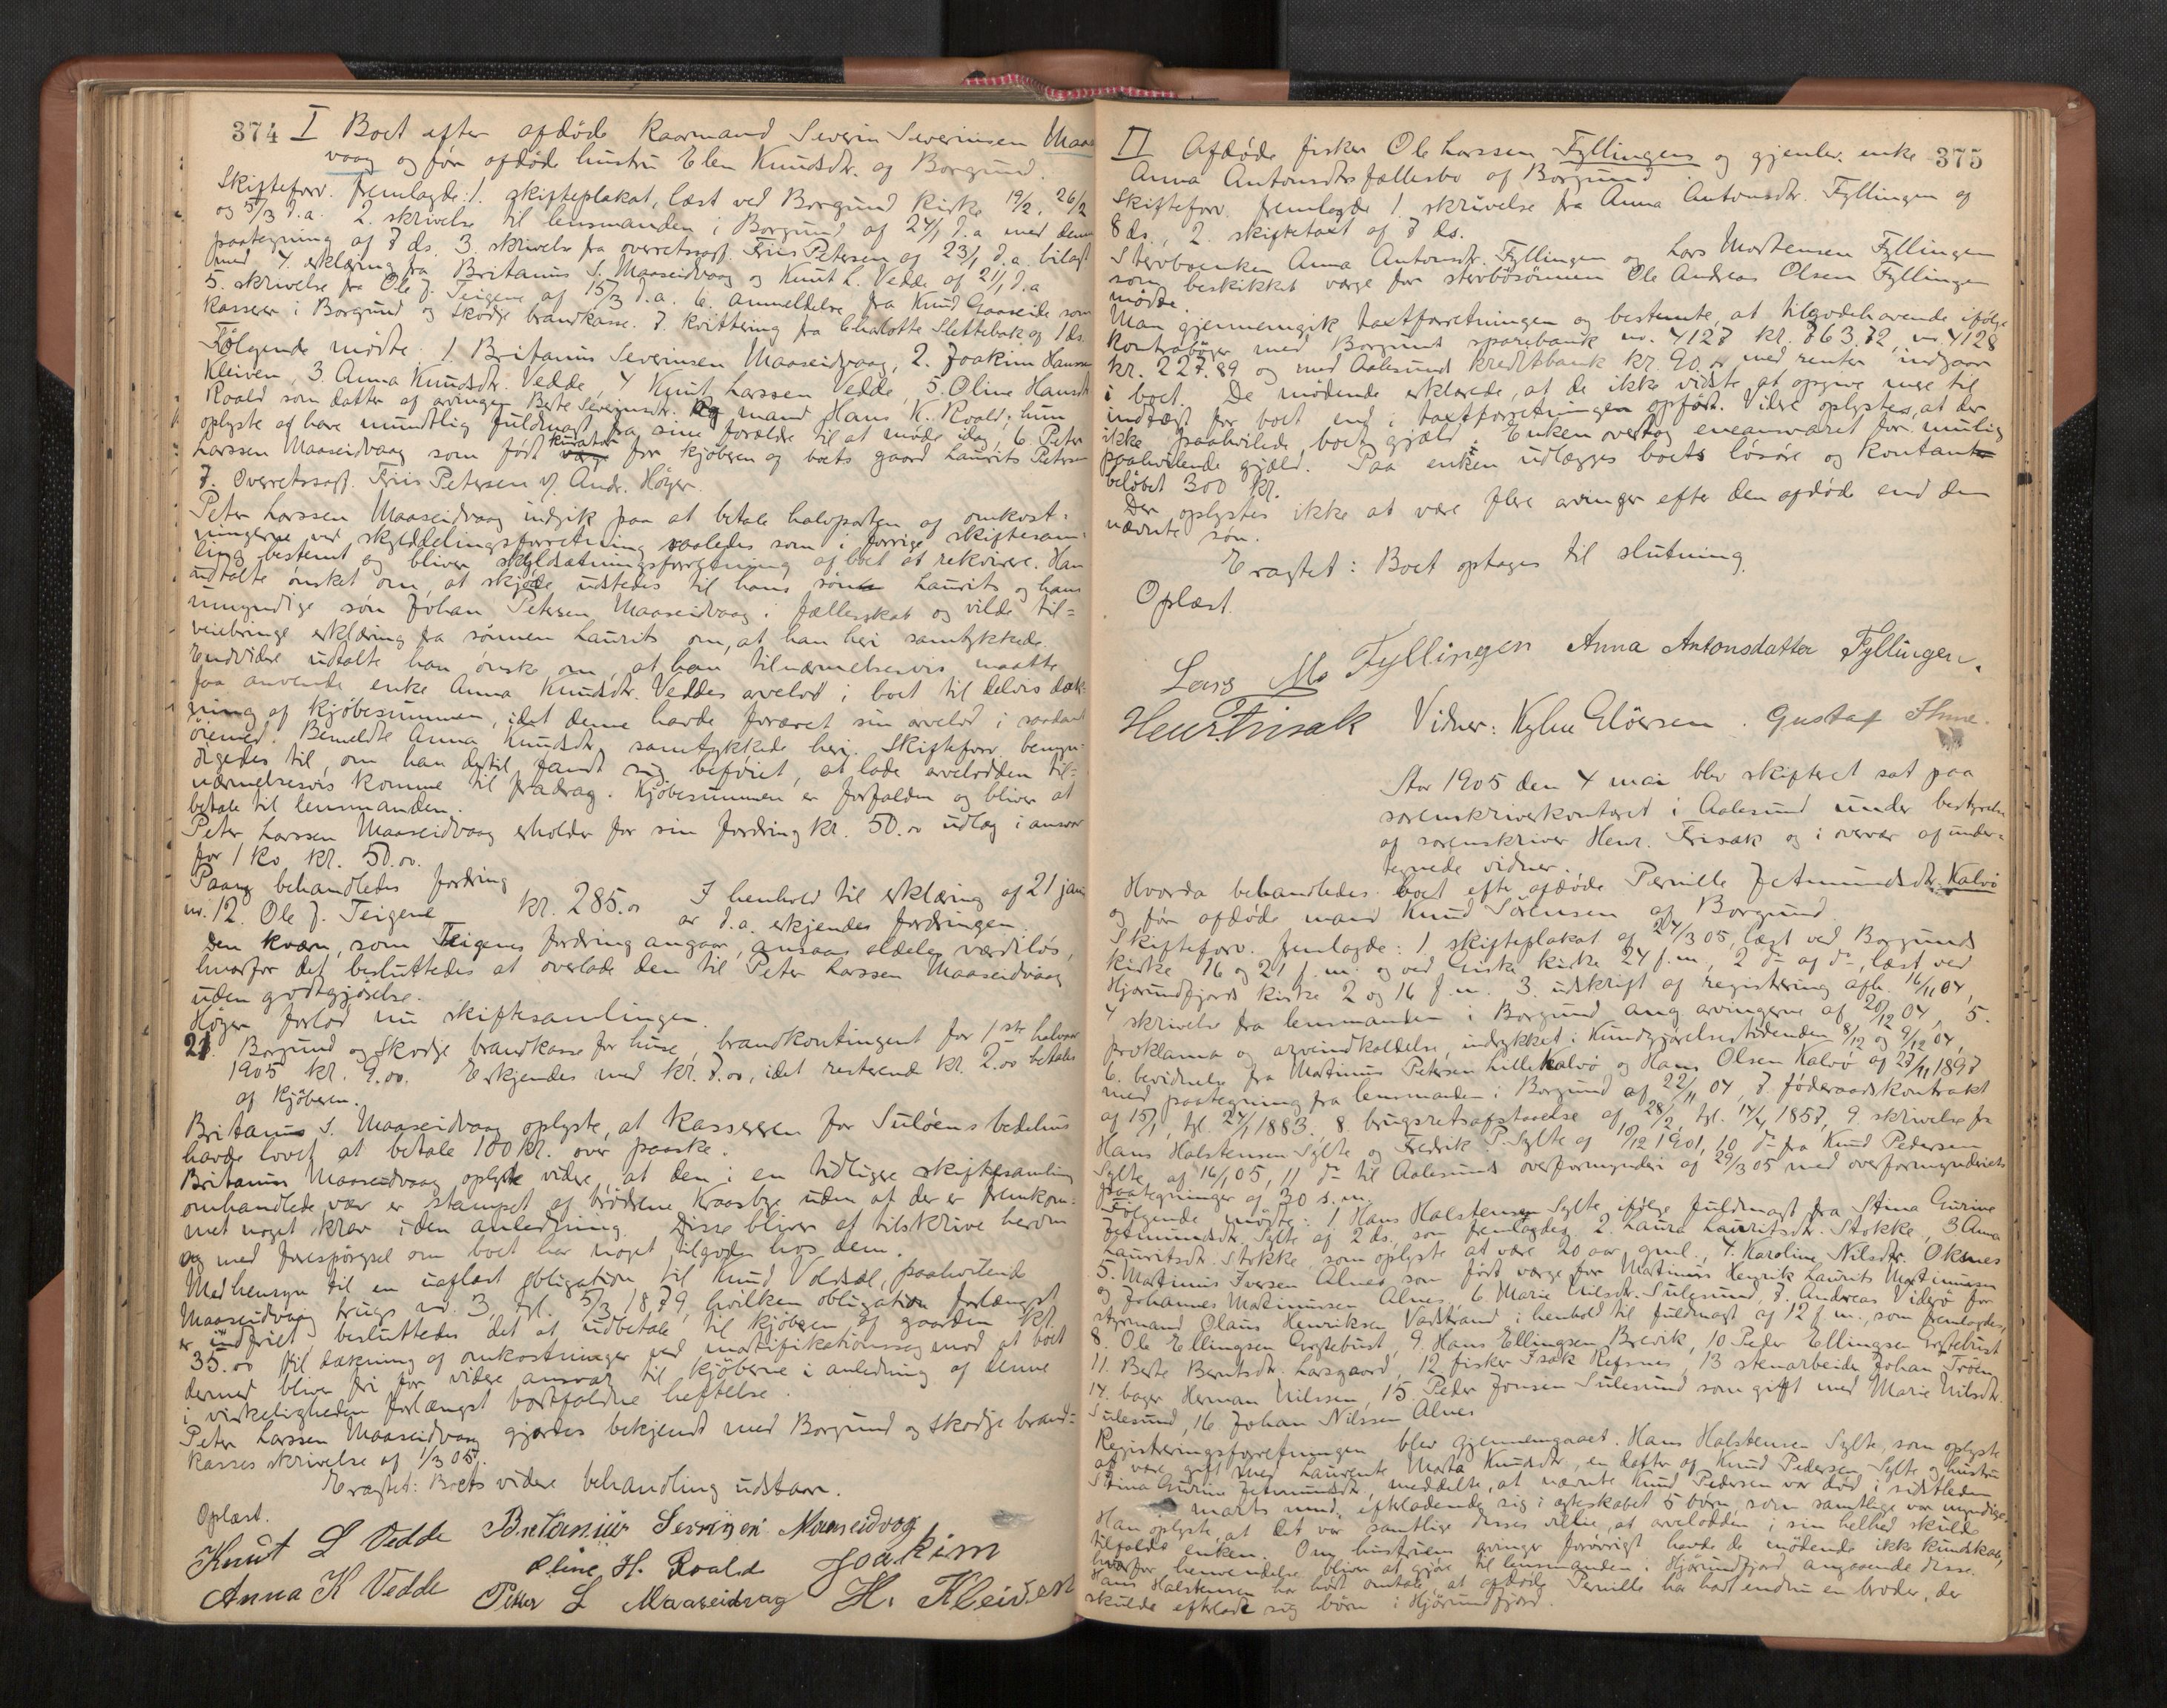 374 I Boet efter afdøde Kaarmand Severin Severinsen Maa=
vaag og før afdøde hustru Elen Knudsdr. af Borgund.
Skifteforv. fremlagde: 1. skifteplakat, læst ved Borgund kirke 19/2, 26/2
og 5/3 d.a. 2. skrivelse til lensmanden i Borgund af 24/1 d.a. med dennes
paategning af 7 ds. 3. skrivelse fra overretssagf. Friis Petersen af 23/1 d.a. bilagt
med 4. erklæring fra Britanus S. Maaseidvaag og Knut L. Vedde af 21/1 d.a
5. skrivelse fra Ole J. Teigene af 15/3 d.a. 6. anmeldelse fra Knud Gaaseide som
kasserer i Borgund og Skodje brandkasse. 7. kvittering fra Charlotte Slettebak af 1 ds.
Følgende mødte. 1. Britanus Severinsen Maaseidvaag, 2. Joakim Hansen
Kleiven, 3. Anna Knudsdr. Vedde, 4 Knut Larssen Vedde, 5. Oline Hansdr
Roald som datter af arvingen Berte Severinsdr. og mand Hans K. Roald; hun
oplyste at have mundtlig fuldmagt fra sine forældre til at møde idag, 6. Peter
Larssen Maaseidvaag som født kurator for kjøberen af boets gaard Laurits Petersen
7. Overretssagf. Friis Petersen v/ Andr. Høger.
Peter Larssen Maaseidvaag indgik paa at betale halvparten af omkost=
ningerne ved skylddelingsforretning saaledes som i forrige skiftesam=
ling bestemt og bliver skyldsætningsforretning af boet at rekvirere. Han
udtalte ønsket om, at skjøde udstedes til hans søn Laurits og hans
umyndige søn Johan Petersen Maaseidvaag i fællesskab og vilde til=
veiebringe erklæring fra sønnen Laurits om, at han heri samtykkede.
Endvidere udtalte han ønske om, at han tilnærmelsesvis maatte
faa anvende enke Anna Knudsdr. Veddes arvelod i boet til delvis dæk=
ning af kjøbesummen, idet denne havde foræret sin arvelod i saadant
øiemed. Bemeldte Anna Knudsdr. samtykkede heri. Skifteforv. bemyn=
digedes til, om han dertil fandt sig beføiet, at lade arvelodden til=
nærmelsesvis komme til fradrag. Kjøbesummen er forfalden og bliver at
betale til lensmanden.
Peter Larssen Maaseidvaag erholder for sin fordring kr. 50.00 udlæg i ansvar
for 1 ko kr. 50.00.
Paany behandledes fordring
nr. 12. Ole J. Teigene kr. 285.00 I henhold til erklæring af 21 janu
ar d.a. erkjendes fordringen.
Den kværn, som Teigens fordring angaar, ansaaes aldeles værdiløs,
hvorfor det besluttedes at overlade den til Peter Larssen Maaseidvaag
uden godtgjørelse.
Høger forlod nu skiftesamlingen.
21. Borgund og Skodje brandkasse for huse, brandkontingent for 1ste halvaar
1905 kr. 9.00. Erkjendes med kr. 7.00, idet resterende kr. 2.00 betales
af kjøberen.
Britanus S. Maaseidvaag oplyste, at kassereren for Suløens bedehus
havde lovet at betale 100 kr. over paaske.
Britanus Maaseidvaag oplyste videre, at den i en tidligere skiftesamling
omhandlede vær er stampet af brødrene Kraasbye uden at der er fremkom=
met noget krav i den anledning. Disse bliver at tilskrive herom
og med forespørgsel om boet har noget tilgode hos dem.
Med hensyn til en uaflæst obligation til Knud Voldsdal, paahvilende
Maaseidvaag brugs nr. 3, tgl. 5/3 1879, hvilken obligation forlængst
er indfriet, besluttedes det at udbetale til kjøberen af gaarden kr.
35.00 til dækning af omkostninger ved mortifikationssag mod at boet
dermed bliver fri for videre ansvar til kjøberne i anledning af denne
i virkeligheden forlængst bortfaldne heftelse.
Peter Larssen Maaseidvaag gjordes bekjendt med Borgund og Skodje brand=
kasses skrivelse af 1/3 05.
Eragtet: Boets videre behandling udstaar.
Oplæst.
Knut L Vedde Britanius Severinsen Maaseidvaag
Oline H. Roald Joakim
Anna K Vedde Petter L Maaseidvag H. Kleiven
II Afdøde fisker Ole Larssen Fyllingens og gjenlev. enke 375
Anna Antonsdrs fællesbo af Borgund
Skifteforv. fremlagde 1. skrivelse fra Anna Antonsdr. Fyllingen af
8 ds., 2. skiftetaxt af 7 ds.
Stervboenken Anna Antonsdr. Fyllingen og Lars Mortensen Fyllingen
som beskikket værge for stervbosønnen Ole Andreas Olsen Fyllingen
mødte.
Man gjennemgik taxtforretningen og bestemte, at tilgodehavende ifølge
kontrabøger med Borgund sparebank nr. 4127 kr. 763.72, nr. 4128
kr. 227.89 og med Aalesunds kreditbank kr. 90.00 med renter indgaar
i boet. De mødende erklærede, at de ikke vidste at opgive mere til
indtægt for boet end i taxtforretningen opført. Videre oplystes, at der
ikke paahvilede boet gjæld. Enken overtog eneansvaret for mulig
paahvilende gjæld. Paa enken udlægges boets løsøre og kontant
beløbet 300 kr.
Der oplystes ikke at være flere arvinger efter den afdøde end den
nævnte søn.
Eragtet: Boet optages til slutning.
Oplæst.
Lars Ms Fyllingen Anna Antonsdatter Fyllingen.
Henr. Frisak Vidner: Kylne Eløersen. Gustaf Thme.
Aar 1905 den 4 mai blev skifteret sat paa
sorenskriverkontoret i Aalesund under bestyrelse
af sorenskriver Henr. Frisak og i overvær af under=
tegnede vidner.
Hvorda behandledes boet efter afdøde Pernille Jetmundsdr. Kalvø
og før afdøde mand Knud Sørensen af Borgund.
Skifteforv. fremlagde: 1 skifteplakat af 24/3 05, læst ved Borgunds
kirke 16 og 21 f.m. og ved Giske kirke 24 f.m., 2 do af do, læst ved
Hjørundfjords kirke 2 og 16 f.m. 3. udskrift af registrering afh. 16/11 04,
4 skrivelse fra lensmanden i Borgund ang arvingerne af 20/12 04, 5.
proklama og arveindkaldelse, indrykket i Kundgjørelsestidenden 8/12 og 9/12 04,
6. bevidnelse fra Martinus Petersen Lille Kalvø og Hans Olsen Kalvø af 27/11 1897
med paategning fra lensmanden i Borgund af 22/11 04, 7. føderaadskontrakt
af 15/1, tgl. 24/1 1883. 8. brugsretsafstaaelse af 28/2, tgl. 14/4 1857, 9 skrivelse fra
Hans Halstensen Sylte og Fredrik P. Sylte af 10/12 1901, 10 do fra Knud Pedersen
Sylte af 16/1 05, 11 do til Aalesunds overformynderi af 29/3 05 med overformynderiets
paategninger af 30 s.m.
Følgende mødte: 1. Hans Halstensen Sylte ifølge fuldmagt fra Stina Gurine
Jetmundsdr. Sylte af 2 ds., som fremlagdes, 2. Laura Lauritsdr. Stokke, 3 Anna
Lauritsdr. Stokke, som oplyste at være 20 aar gml., 4. Karoline Nilsdr. Oksnes
5. Martinus Iversen Alnes som født værge for Martinus Henrik Laurits Martinusen
og Johannes Martinussen Alnes, 6. Marie Nilsdr. Sulesund, 7. Andreas Viderø for
styrmand Olaus Henriksen Vadstrand i henhold til fuldmagt af 12 f.m., som fremlagdes,
8. Ole Ellingsen Ergstebust, 9. Hans Ellingsen Brevik, 10 Peder Ellingsen Ergstebust
11. Berte Berntsdr. Larsgaard, 12 fisker Isak Refsnes, 13 stenarbeider Johan Trøen,
14. bager Herman Nilssen, 15 Peder Jonsen Sulesund som gift med Marie Nilsdr.
Sulesund, 16 Johan Nilssen Alnes
Registreringsforretningen blev gjennemgaaet. Hans Halstensen Sylte, som oplyste
at være gift med Laurente Marta Knudsdr., en datter af Knud Pedersen Sylte og hustru
Stina Gurine Jetmundsdr., meddelte, at nævnte Knud Pedersen var død i sidstleden
marts mnd., efterladende sig i ægteskabet 5 børn, som samtlige var myndige.
Han oplyste, at det var samtlige disses vilje, at arvelodden i sin helhed skulde
tilfalde enken. Om hustruens arvinger forøvrigt havde de mødende ikke kundskab,
hvorfor henvendelse bliver at gjøre til lensmanden i Hjørundfjord angaaende disse.
Hans Halstensen har hørt omtale, at afdøde Pernille har havt endnu en broder, der
skulde efterlade sig børn i Hjørundfjord.